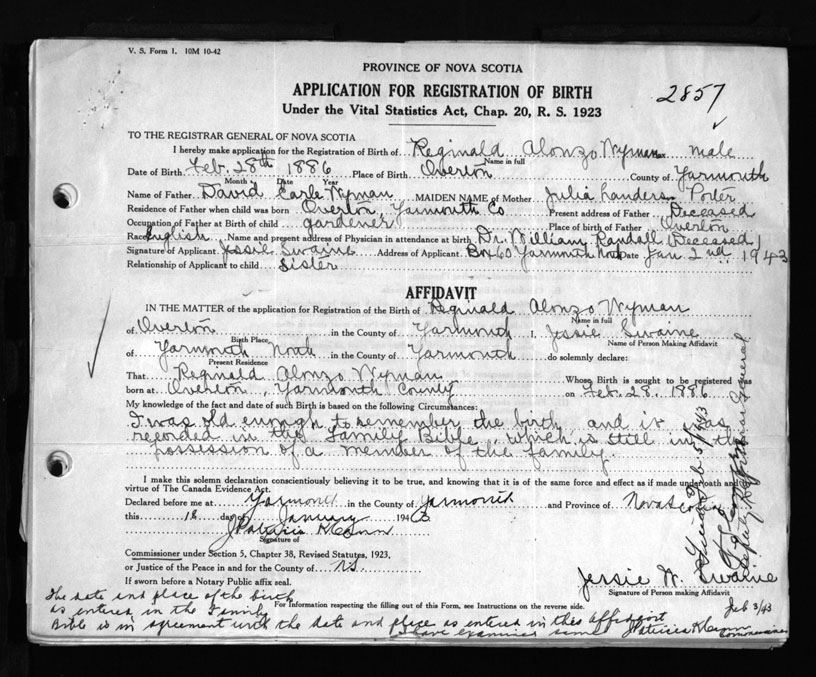 V. S. Form 1. 10M 10-42
PROVINCE OF NOVA SCOTIA
APPLICATION FOR REGISTRATION OF BIRTH
2857
Under the Vital Statistics Act, Chap. 20, R. S. 1923
TO THE REGISTRAR GENERAL OF NOVA SCOTIA
I hereby make application for the Registration of Birth of Reginald Alonzo Wyman Sex male
Name in full
Date of Birth Feb. 28th 1886 Place of Birth Overton County of Yarmouth
Month Date Year
Name of Father David Earle Wyman MAIDEN NAME of Mother Julia Landers Porter
Residence of Father when child was born Overton, Yarmouth Co Present address of Father Deceased
Occupation of Father at Birth of child gardener Place of birth of Father Overton
Race English Name and present address of Physician in attendance at birth Dr. William Randall (Deceased)
Signature of Applicant Jessie Swaine Address of Applicant Box 60 Yarmouth North Date Jan 2nd 1943
Relationship of Applicant to child Sister
AFFIDAVIT
IN THE MATTER of the application for Registration of the Birth of Reginald Alonzo Wyman
Name in full
of Overton in the County of Yarmouth I, Jessie Swaine
Birth Place Name of Person Making Affidavit
of Yarmouth North in the County of Yarmouth do solemnly declare:
Present Residence
That Reginald Alonzo Wyman Whose Birth is sought to be registered was
born at Overton, Yarmouth County on Feb. 28, 1886
My knowledge of the fact and date of such Birth is based on the following Circumstances:
I was old enough to remember the birth and it was
recorded in the Family Bible, which is still in the
possession of a member of the family.
I make this solemn declaration conscientiously believing it to be true, and knowing that it is of the same force and effect as if made under oath and
virtue of The Canada Evidence Act.
Declared before me at Yarmouth in the County of Yarmouth and Province of Nova Scotia
this 18 day of January 1943
Patricia K
Signature of
Commissioner under Section 5, Chapter 38, Revised Statutes, 1923,
or Justice of the Peace in and for the County of N.S.
If sworn before a Notary Public affix seal.
Jessie W. Swaine
Signature of Person making Affidavit
For Information respecting the filling out of this Form, see Instructions on the reverse side.
The date and place of the birth
as entered in the Family
Bible is in agreement with the date and place as entered in this affidavit
I have examined same Patricia K
Commissioner
Feb 3/43
Feb 5/43
Deputy Registrar General